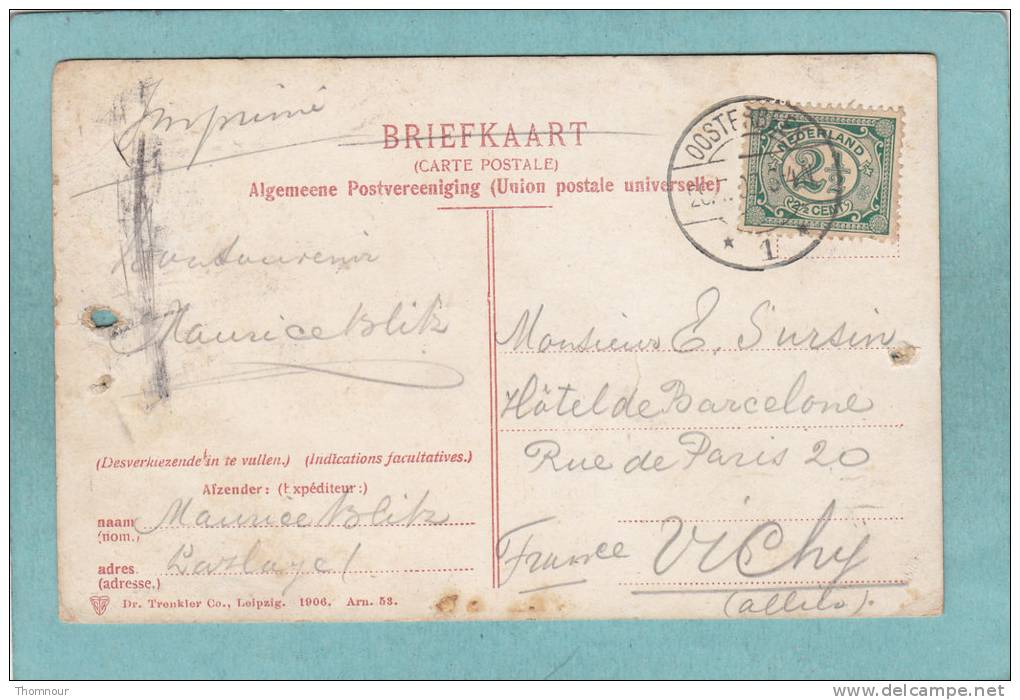 Imprimé
BRIEFKAART
(CARTE POSTALE)
Algemeene Postvereeniging (Union postale universelle)
NEDERLAND
2½
(2½ CENT)
1
Bon souvenir
Maurice Blik
Monsieur E. Sursin
Hôtel de Barcelone
Rue de Paris 20
France Vichy
(allila).
(Desverkiezende in te vullen.) (Indications facultatives.)
Afzender: (Expéditeur:)
naam Maurice Blik
(nom.)
adres.
(adresse.)
Dr. Trenkler Co., Leipzig. 1906. Arn. 53.
Thomnour
www.delcampe.net